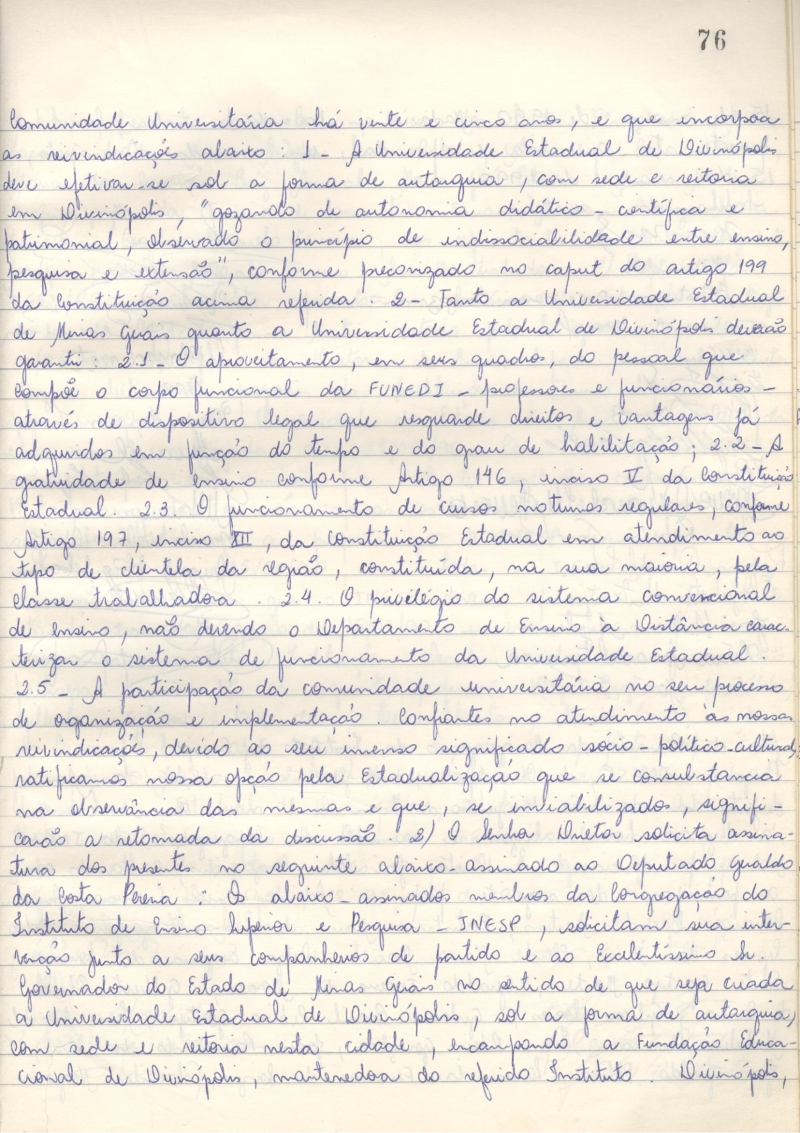 76
Comunidade Universitária há vinte e cinco anos, e que incorpora
as reivindicações abaixo: 1 - A Universidade Estadual de Divinópolis
deve efetivar-se sob a forma de autarquia, com sede e reitoria
em Divinópolis, "gozando de autonomia didático - científica e
patrimonial, observado o princípio de indissociabilidade entre ensino,
pesquisa e extensão", conforme preconizado no caput do artigo 199
da Constituição acima referida. 2 - Tanto a Universidade Estadual
de Minas Gerais quanto a Universidade Estadual de Divinópolis deverão
garantir: 2.1 - O aproveitamento, em seus quadros, do pessoal que
compõe o corpo funcional da FUNEDI - professores e funcionários -
através de dispositivo legal que resguarde direitos e vantagens já
adquiridos em função do tempo e do grau de habilitação; 2.2 - A
gratuidade de ensino conforme Artigo 146, inciso V da Constituição
Estadual. 2.3. O funcionamento de cursos noturnos regulares, conforme
Artigo 197, inciso XII, da Constituição Estadual em atendimento ao
tipo de clientela da região, constituída, na sua maioria, pela
classe trabalhadora. 2.4. O privilégio do sistema convencional
de ensino, não devendo o Departamento de Ensino à Distância carac-
terizar o sistema de funcionamento da Universidade Estadual.
2.5 - A participação da comunidade universitária no seu processo
de organização e implementação. Confiantes no atendimento às nossas
reivindicações, devido ao seu imenso significado sócio-político-cultural,
ratificamos nossa opção pela Estadualização que se consubstancia
na observância das mesmas e que, se inviabilizados, signifi-
carão a retomada da discussão. 2) O Senhor Diretor solicita assina-
tura dos presentes no seguinte abaixo-assinado ao Deputado Geraldo
da Costa Pereira: Os abaixo-assinados membros da Congregação do
Instituto de Ensino Superior e Pesquisa - INESP, solicitam sua inter-
venção junto a seus companheiros de partido e ao Excelentíssimo Sr.
Governador do Estado de Minas Gerais no sentido de que seja criada
a Universidade Estadual de Divinópolis, sob a forma de autarquia,
com sede e reitoria nesta cidade, encampando a Fundação Educa-
cional de Divinópolis, mantenedora do referido Instituto. Divinópolis,